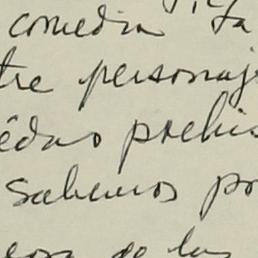 comedia la
tre personaj
prehis
sabemos po
de las